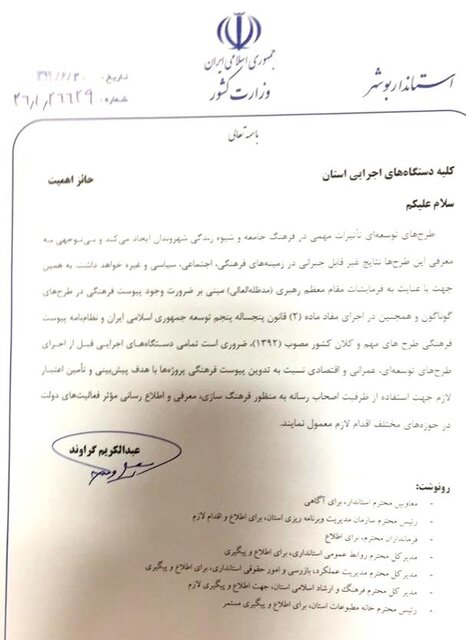 جمهوری اسلامی ایران
وزارت کشور
استاندار بوشهر
تاریخ:
شماره: ۲۶/۱/۲۶۶۲۹
باسمه تعالی
کلیه دستگاه‌های اجرایی استان
حائز اهمیت
سلام علیکم
طرح‌های توسعه‌ای تأثیرات مهمی در فرهنگ جامعه و شیوه زندگی شهروندان ایجاد می‌کند و بی‌توجهی به
معرفی این طرح‌ها نتایج غیر قابل جبرانی در زمینه‌های فرهنگی، اجتماعی، سیاسی و غیره خواهد داشت. به همین
جهت با عنایت به فرمایشات مقام معظم رهبری (مدظله‌العالی) مبنی بر ضرورت وجود پیوست فرهنگی در طرح‌های
گوناگون و همچنین در اجرای مفاد ماده (۲) قانون پنجساله پنجم توسعه جمهوری اسلامی ایران و نظام‌نامه پیوست
فرهنگی طرح های مهم و کلان کشور مصوب (۱۳۹۲)، ضروری است تمامی دستگاه‌های اجرایی قبل از اجرای
طرح‌های توسعه‌ای، عمرانی و اقتصادی نسبت به تدوین پیوست فرهنگی پروژه‌ها با هدف پیش‌بینی و تأمین اعتبار
لازم جهت استفاده از ظرفیت اصحاب رسانه به منظور فرهنگ سازی، معرفی و اطلاع رسانی مؤثر فعالیت‌های دولت
در حوزه‌های مختلف اقدام لازم معمول نمایند.
عبدالکریم گراوند
رونوشت:
- معاونین محترم استاندار، برای آگاهی
- رئیس محترم سازمان مدیریت وبرنامه ریزی استان، برای اطلاع و اقدام لازم
- فرمانداران محترم، برای اطلاع
- مدیر کل محترم روابط عمومی استانداری، برای اطلاع و پیگیری
- مدیر کل محترم مدیریت عملکرد، بازرسی و امور حقوقی استانداری، برای اطلاع و پیگیری
- مدیر کل محترم فرهنگ و ارشاد اسلامی استان، جهت اطلاع و پیگیری لازم
- رئیس محترم خانه مطبوعات استان، برای اطلاع و پیگیری مستمر